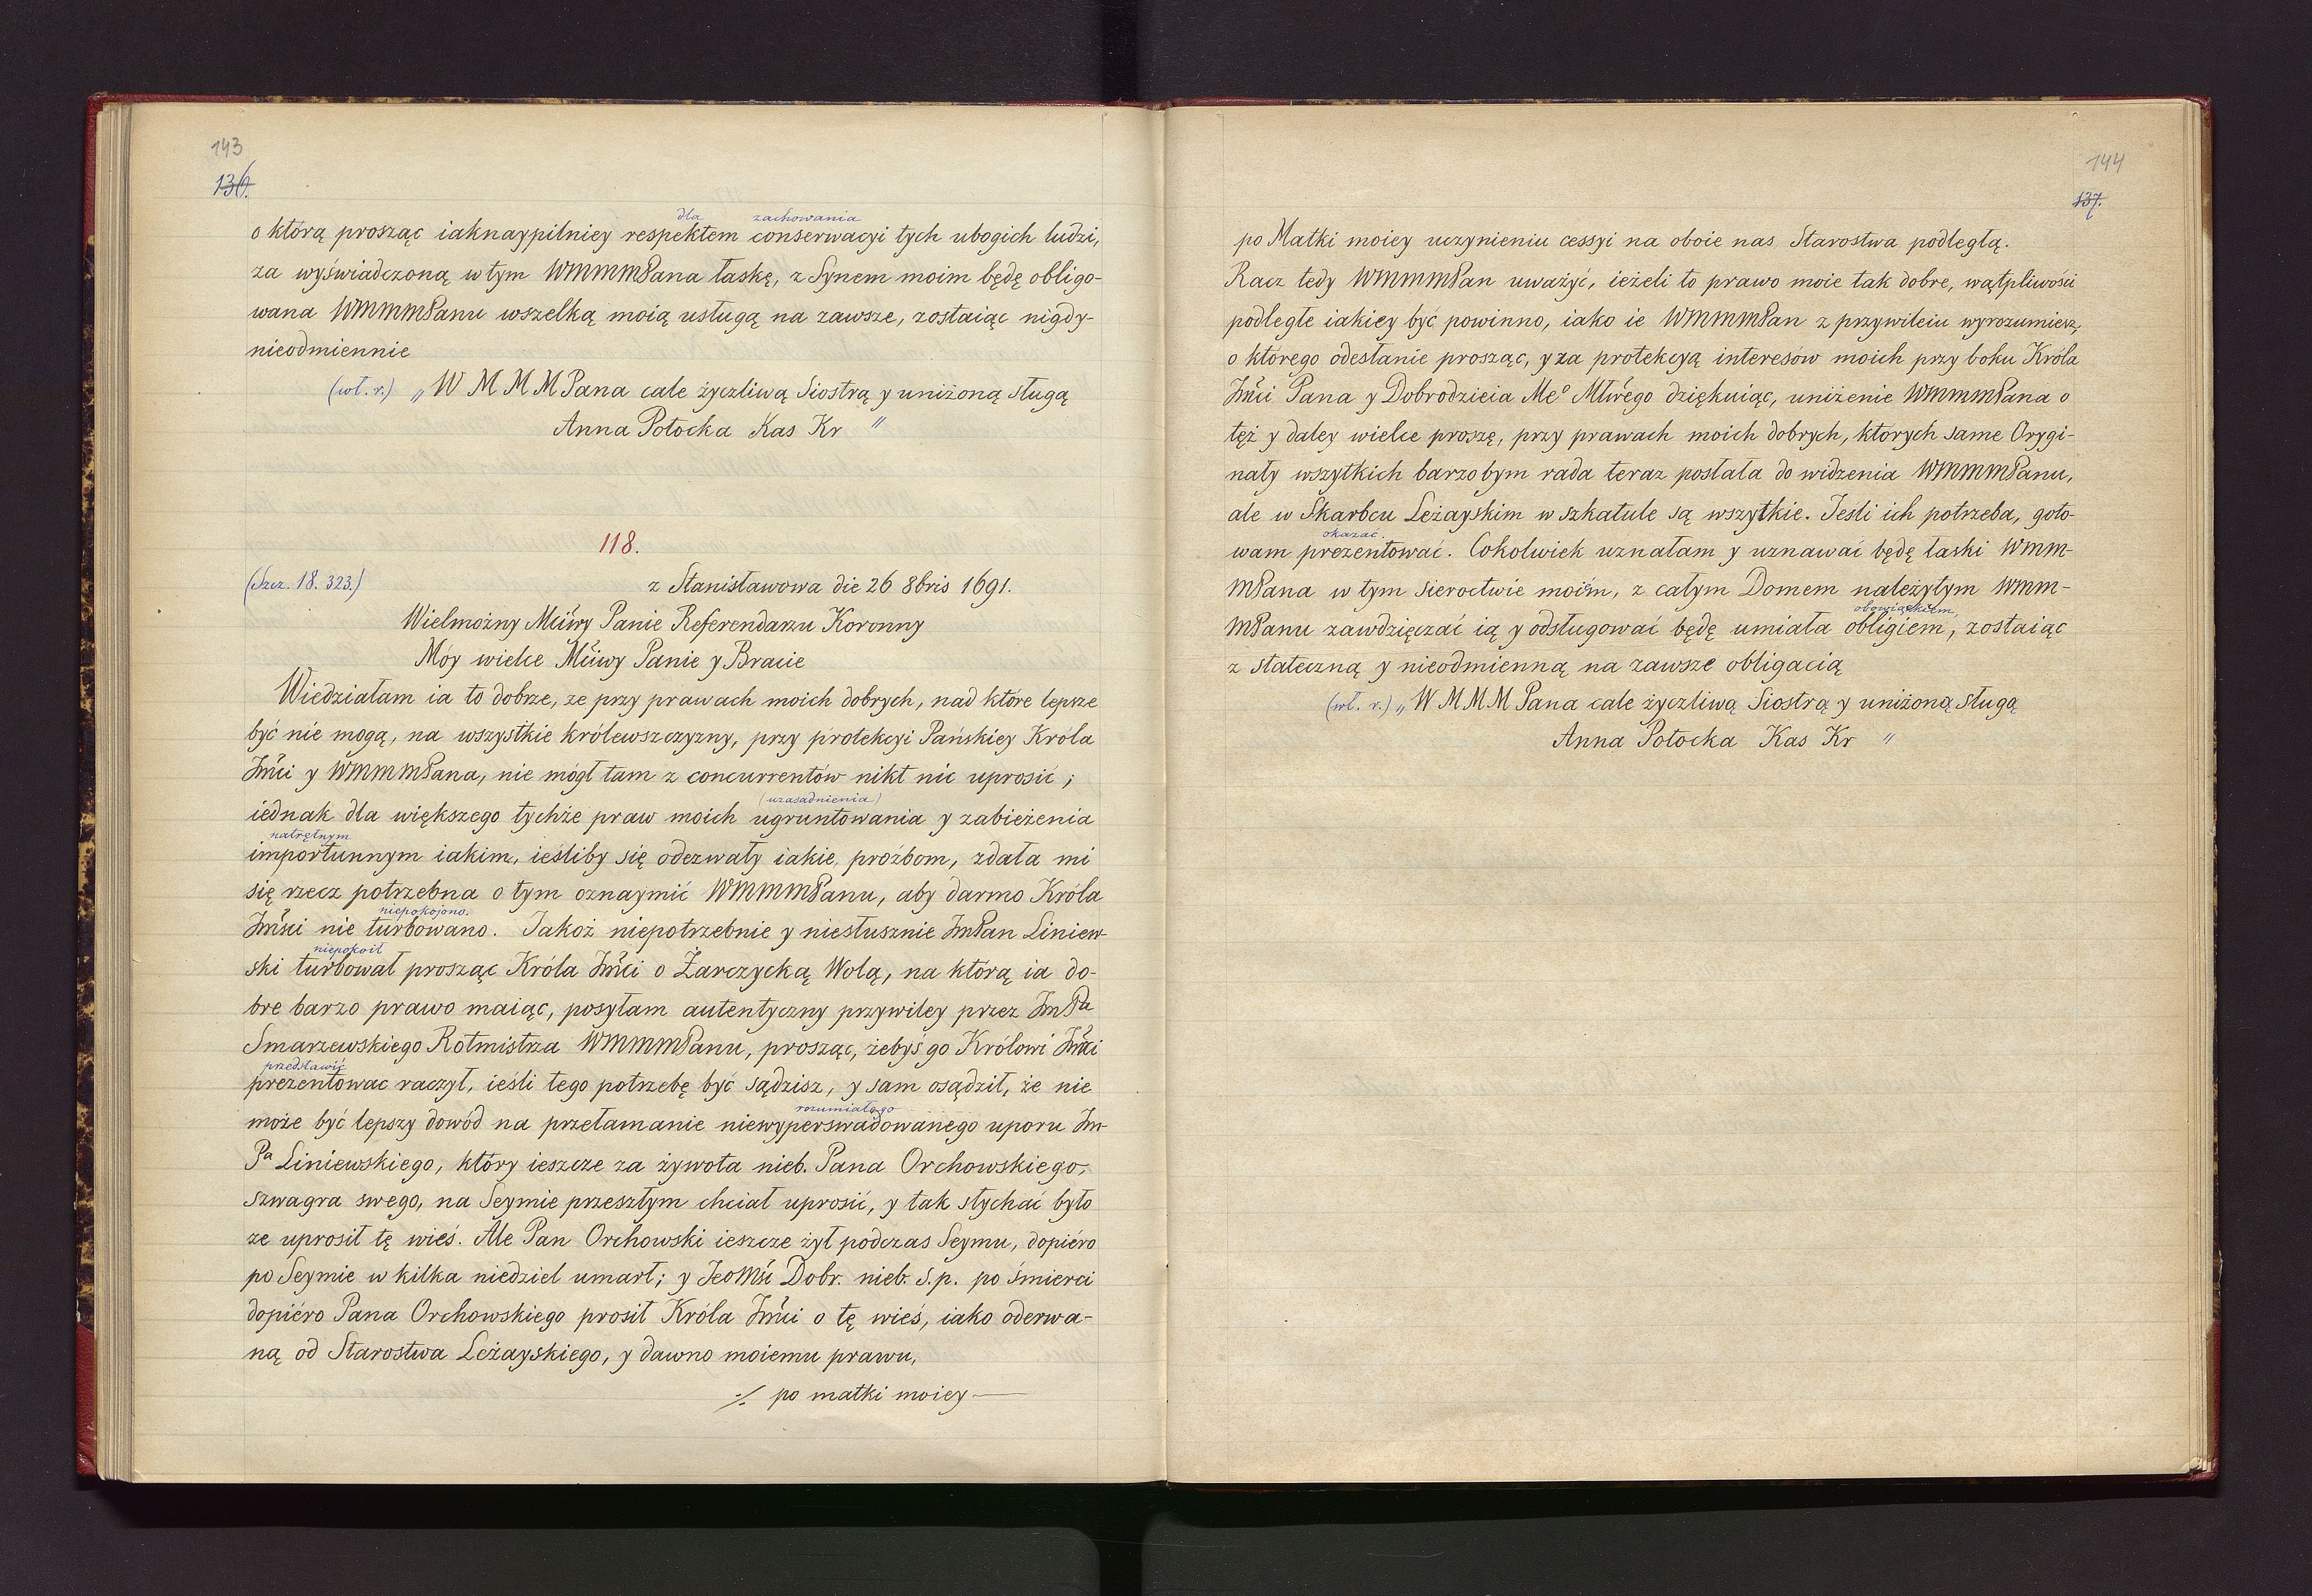 143
136.
dla zachowania
o którą prosząc iaknaypilniey respektem conserwacyi tych ubogich ludzi,
za wyświadczoną w tym WMMMPana łaskę, z Synem moim będę obligo-
wana WMMMPanu wszelką moią usługą na zawsze, zostaiąc nigdy-
nieodmiennie
(wł. r.) „W M M M Pana cale życzliwą Siostrą y uniżoną sługą
Anna Potocka Kas Kr "
118.
(Szcz. 18. 323.)
z Stanisławowa die 26 8bris 1691.
Wielmożny Mciwy Panie Referendarzu Koronny
Móy wielce Mciwy Panie y Bracie
Wiedziałam ia to dobrze, ze przy prawach moich dobrych, nad które lepsze
być nie mogą, na wszystkie królewszczyzny, przy protekcyi Pańskiey Króla
Jmci y WMMMPana, nie mógł tam z concurrentów nikt nic uprosić;
(uzasadnienia)
iednak dla większego tychże praw moich ugruntowania y zabieżenia
natrętnym
importunnym iakim, ieśliby się odezwały iakie, proźbom, zdała mi
się rzecz potrzebna o tym oznaymić WMMMPanu, aby darmo Króla
niepokojono.
Jmści nie turbowano. Jakoż niepotrzebnie y niesłusznie JmPan Liniew-
niepokoił
ski turbował prosząc Króla Jmci o Żarczycką Wolą, na którą ia do-
bre barzo prawo maiąc, posyłam autentyczny przywiley przez JmPa
Smarzewskiego Rotmistrza WMMMPanu, prosząc, żebyś go Królowi Jmci
przedstawić
prezentowac raczył, ieśli tego potrzebę być sądzisz, y sam osądził, że nie
rozumiałego
może być lepszy dowód na przełamanie niewyperswadowanego uporu Jm-
Pa Liniewskiego, który ieszcze za żywota nieb. Pana Orchowskiego,
szwagra swego, na Seymie przeszłym chciał uprosić, y tak słychać było
ze uprosił tę wieś. Ale Pan Orchowski ieszcze żył podczas Seymu, dopiéro
po Seymie w kilka niedziel umarł; y JeoMść Dobr. nieb. S.p. po śmierci
dopiéro Pana Orchowskiego prosił Króla Jmci o tę wieś, iako oderwa-
ną od Starostwa Leżayskiego, y dawno moiemu prawu,
⁒ po matki moiey —
144
137.
po Matki moiey uczynieniu cessyi na oboie nas Starostwa podległą.
Racz tedy WMMMPan uważyć, ieżeli to prawo moie tak dobre, wątpliwości
podległe iakiey być powinno, iako ie WMMMPan z przywileiu wyrozumiesz,
o którego odesłanie prosząc, y za protekcyą interesów moich przy boku Króla
Jmci Pana y Dobrodzieia Meo Młwego dziękuiąc, uniżenie WMMMPana o
tęż y daley wielce proszę, przy prawach moich dobrych, których same Orygi-
nały wszytkich barzobym rada teraz posłała do widzenia WMMMPanu,
ale w Skarbcu Leżayskim w szkatule są wszytkie. Jeśli ich potrzeba, goto-
okazać.
wam prezentować. Cokolwiek uznałam y uznawać będę łaski WMM-
MPana w tym sieroctwie moiém, z całym Domem należytym WMM-
obowiązkiem,
MPanu zawdzięczać ią y odsługować będę umiała obligiem, zostaiąc
z stateczną y nieodmienną na zawsze obligacią
(wł. r.) „W M M M Pana cale życzliwą Siostrą y uniżoną sługą
Anna Potocka Kas Kr "